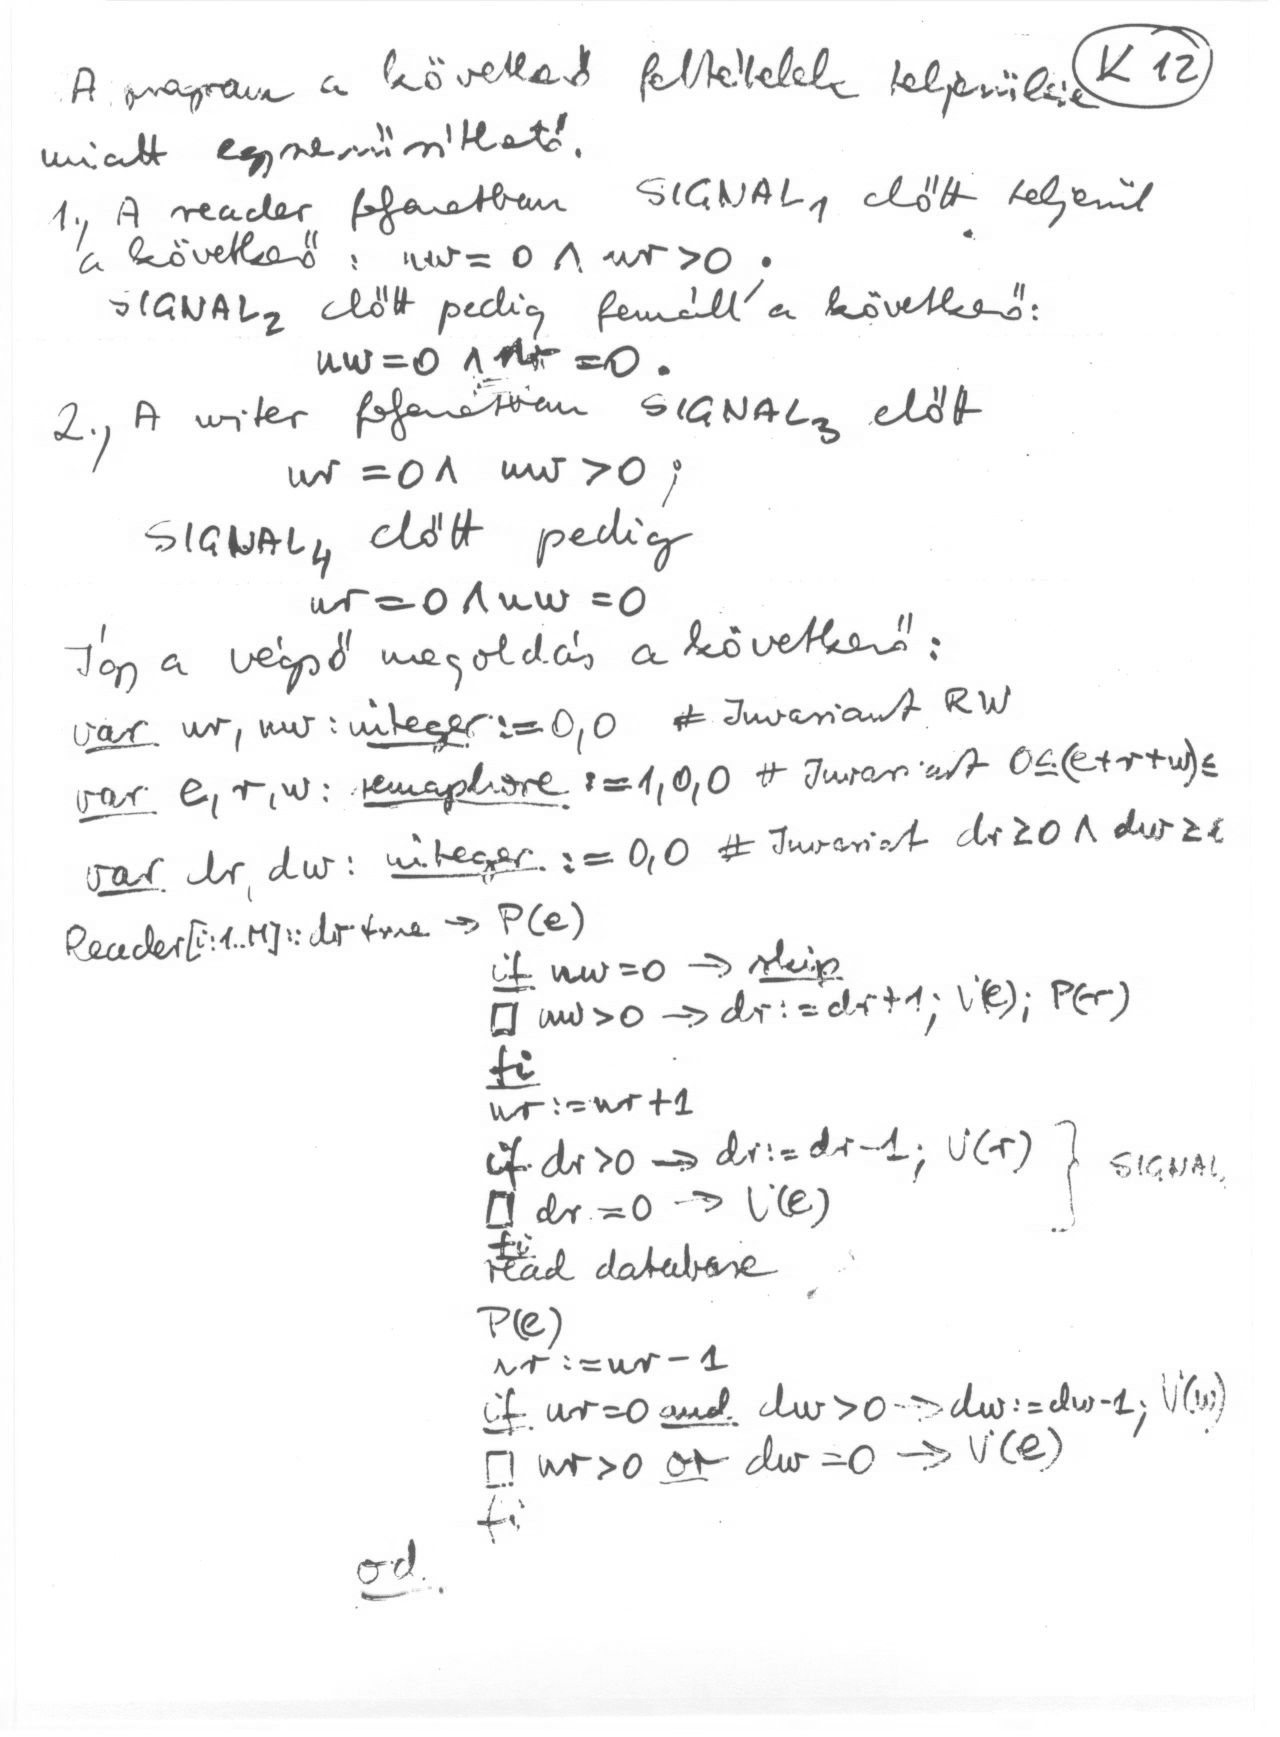 K 12
A program a következő feltételek teljesülése
miatt egyszerűsíthető.
1., A reader folyamatban SIGNAL1 előtt teljesül
a következő: nw = 0 ∧ nr > 0.
SIGNAL2 előtt pedig fennáll a következő:
nw = 0 ∧ nr = 0.
2., A writer folyamatban SIGNAL3 előtt
nr = 0 ∧ nw > 0;
SIGNAL4 előtt pedig
nr = 0 ∧ nw = 0
Így a végső megoldás a következő:
var nr, nw : integer := 0,0 # Invariant RW
var e, r, w : semaphore := 1,0,0 # Invariant 0≤(e+r+w)≤
var dr, dw : integer := 0,0 # Invariant dr≥0 ∧ dw≥
Reader[i:1..M]:: do true → P(e)
if nw=0 → skip
▯ nw>0 → dr:=dr+1; V(e); P(r)
fi
nr:=nr+1
if dr>0 → dr:=dr-1; V(r) } SIGNAL
▯ dr=0 → V(e)
fi
read database
P(e)
nr:=nr-1
if nr=0 and dw>0 → dw:=dw-1; V(w)
▯ nr>0 or dw=0 → V(e)
fi
od.